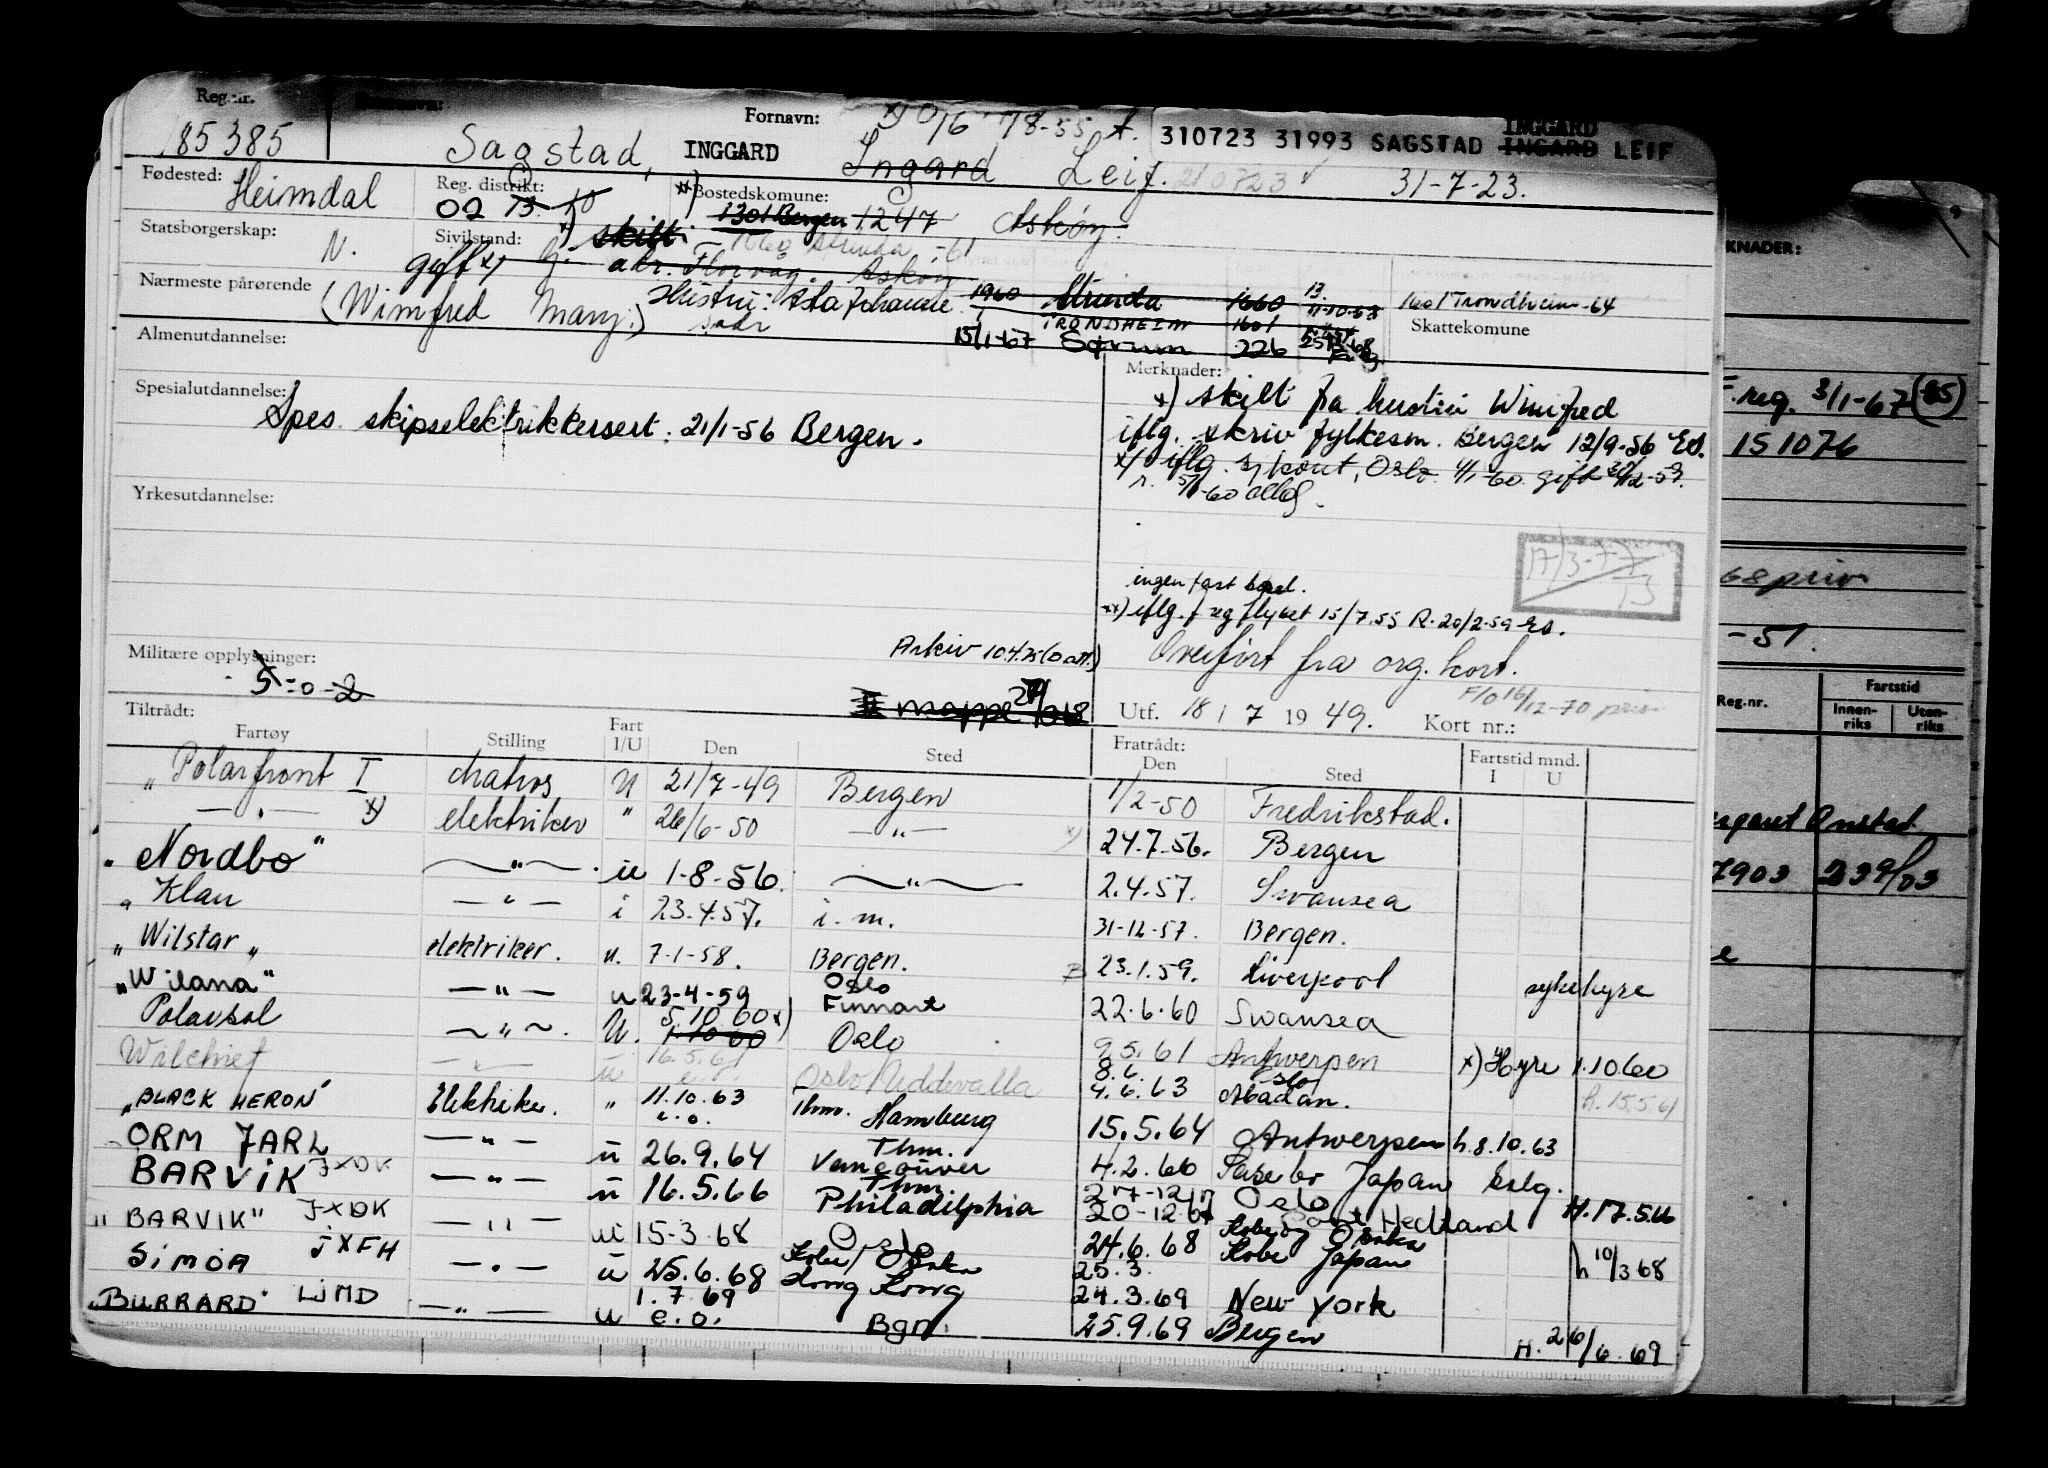 Reg.nr. Fornavn: 10/6 78-55 310723 31993 SAGSTAD INGGARD INGARD LEIF
185385 Sagstad, INGGARD Ingard Leif. 210723 31-7-23.
Fødested: Heimdal Reg. distrikt: 02 13. 10 Bostedskommune: 1301 Bergen 1247 Askøy.
Statsborgerskap: N. Sivilstand: gift x) g. skilt. 1660 Strinda -61
adr. Florvåg. Askøy
Nærmeste pårørende (Winifred Mary.) Hustru: Johanne 1960 Strinda 1660 13. 11-10-58 1601 Trondheim-64
sadr TRONDHEIM 1601 Skattekomune
Almenutdannelse: 15/1-67 Sørum 226
Merknader:
Spesialutdannelse:
Spes. skipselektrikkersert. 21/1-56 Bergen.
x) skilt fra hustru Winifred
iflg. skriv fylkesm. Bergen 12/9-56 Es.
x) iflg. sj.kont, Oslo 4/1-60. gift 30/12-59.
r. 5/1-60
Yrkesutdannelse:
17/3-77
13
ingen fast bopel.
xx) iflg. f reg flyttet 15/7.55 R. 20/2-59 Es.
Militære opplysninger:
5-0-2
Arkiv 10.4.75 (0 att.)
Overført fra org. kort.
II mappe
Utf. 18 / 7 19 49. Kort nr.: F/O 16/12-70 priv
Tiltrådt: Fratrådt:
Fartøy Stilling Fart I/U Den Sted Den Sted Fartstid mnd. I U
"Polarfront I Matros U 21/7-49 Bergen 1/2-50 Fredrikstad.
— " — x) elektriker " 26/6-50 — " — 24.7.56. Bergen
"Nordbo" — " — u 1-8-56. — " — 2.4.57. Swansea
"Klau — " — i 23.4.57. i. m. 31-12-57. Bergen.
"Wilstar" elektriker. u. 7-1-58. Bergen. 23.1.59. Liverpool sykehyre
"Wilana" — " — u 23-4-59 Oslo Finnart 22.6.60 Swansea
Polarsol — " — U. 5.10 60 x) 1.10 60 Oslo 9.5.61 Antwerpen x) Hyre 1.10.60
Wilchief — " — u 16.5.61 e.o. Oslo/Uddevalla 8.6. 4.6.63 Oslo Abadan. h. 15.5.61
"BLACK HERON" Elektriker. " 11.10.63 e.o. Thm. Hamburg 15.5.64 Antwerpen h. 8.10.63
ORM JARL — " — u 26.9.64 Thm. Vancouver 4.2.66 Sasebo Japan
BARVIK JXDK — " — u 16.5.66 Thm. Philadelphia 27-12/ 20-12 67 Oslo Port Hedland H. 17.5.66
"BARVIK" JXDK — " — u 15-3.68 Oslo 24.6.68 Kobe og Osaka Kobe Japan h 10/3 68
SIMOA JXFH — " — u 25.6.68 Kobe/Osaka Hong Kong 25.3. 24.3.69 New York
"BURRARD" LJMD — " — u 1.7.69 e.o. Bgn. 25.9.69 Bergen H. 26/6.69
KNADER:
F. reg. 3/1-67 (85)
151076
68 priv
-51.
Reg.nr. Fartstid
Innen-riks Uten-riks
Onstad
7903 239/03